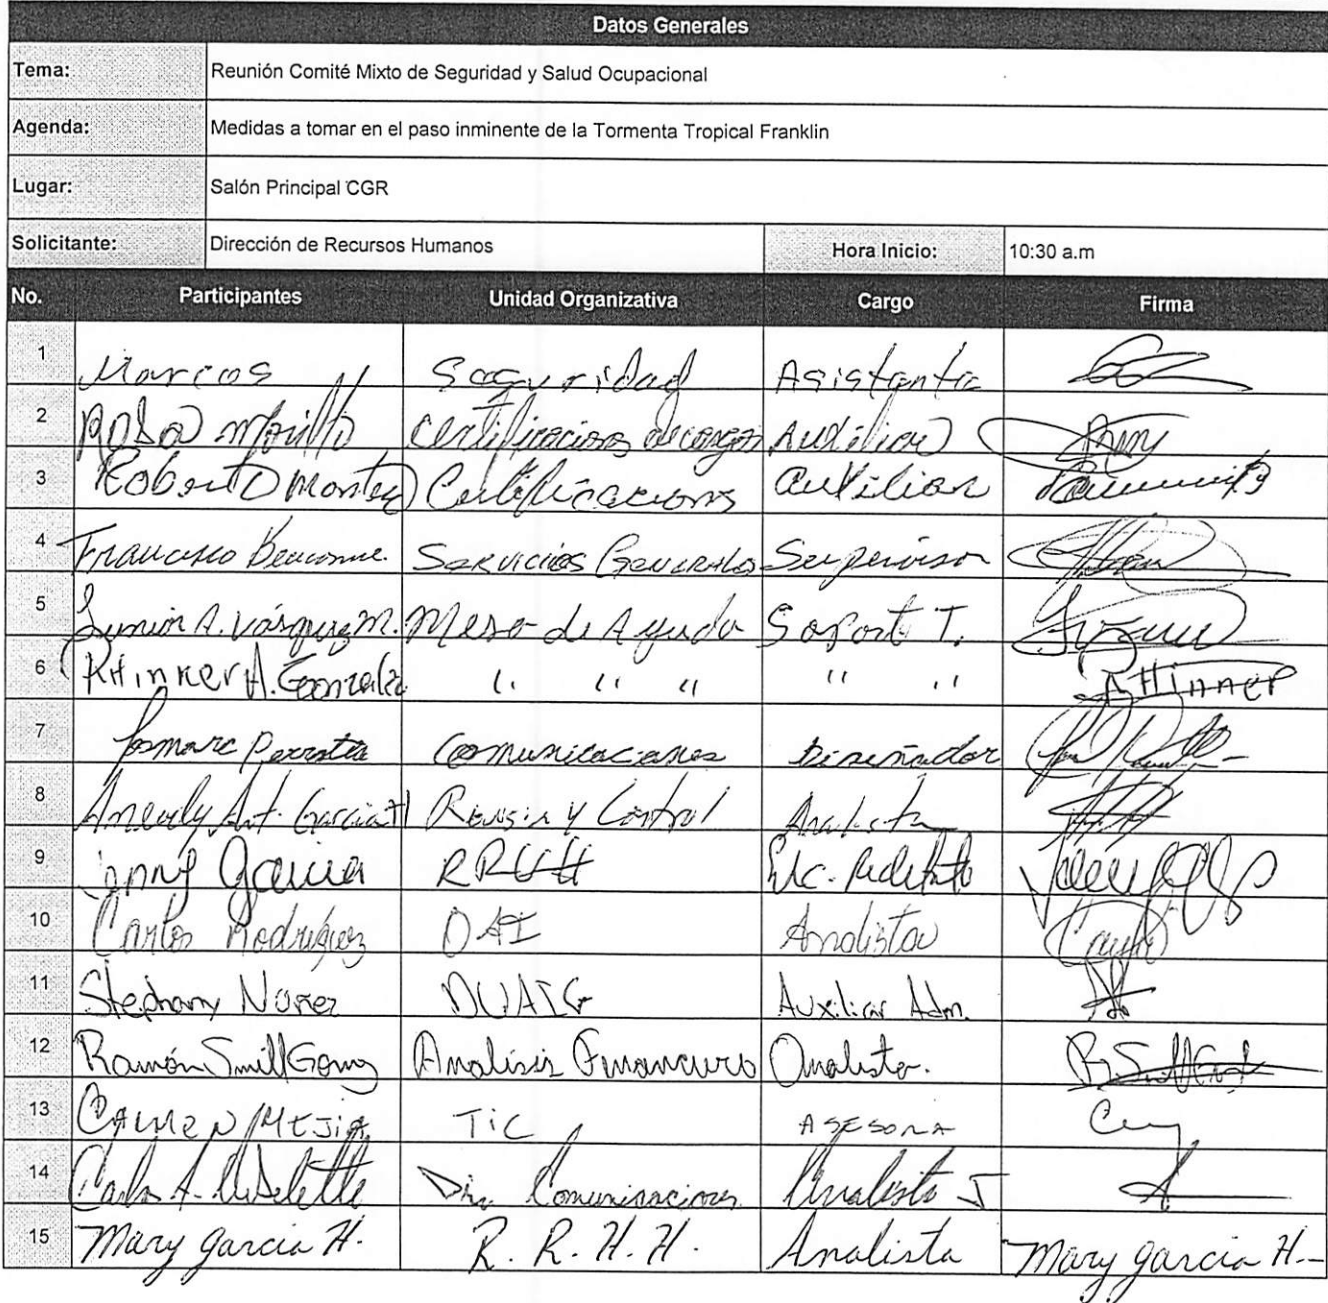 Datos Generales
Tema: Reunión Comité Mixto de Seguridad y Salud Ocupacional
Agenda: Medidas a tomar en el paso inminente de la Tormenta Tropical Franklin
Lugar: Salón Principal CGR
Solicitante: Dirección de Recursos Humanos Hora Inicio: 10:30 a.m
No. Participantes Unidad Organizativa Cargo Firma
1 Marcos Seguridad Asistente
2 Rosa Certificaciones de cargos Auxiliar
3 Roberto Certificaciones auxiliar
4 Francisco Servicios Generales Supervisor
5 Junior A. Vásquez M. Mesa de Ayuda Soport T.
6 Rhinker A. Gonzalez " " " " "
7 Comunicaciones Diseñador
8 Ant. García Revisión y Control Analista
9 García RRHH
10 Carlos Rodríguez OAI Analista
11 Stephany Nuñez Auxiliar Adm.
12 Ramón Smill Gomez Analisis Financiero Analista.
13 Carmen Mejia TIC ASESORA
14 Carlos A. Dir. Comunicaciones Analista
15 Mary García H. R. R. H. H. Analista Mary García H.